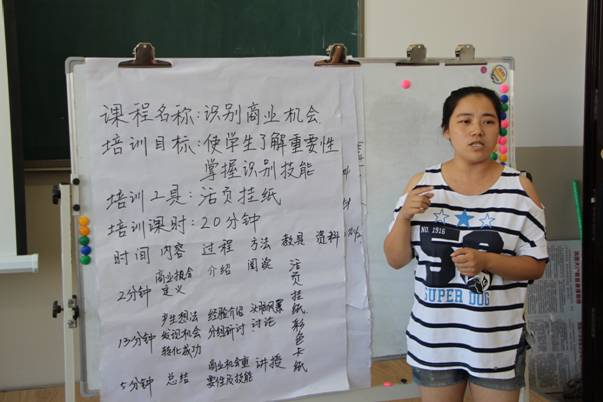 课程名称:识别商业机会
培训目标:使学生了解重要性
掌握识别技能
培训工具:活页挂纸
培训课时:20分钟
时间 内容 过程 方法 教具 资料
2分钟 商业机会定义 介绍 阅读 活页挂纸彩色卡纸
13分钟 产生想法 经验介绍 头脑风暴
发现机会 分组研讨 讨论
转化成功
5分钟 总结 商业机会重要性及技能 讲授
NO. 1916
58
SUPER DOG